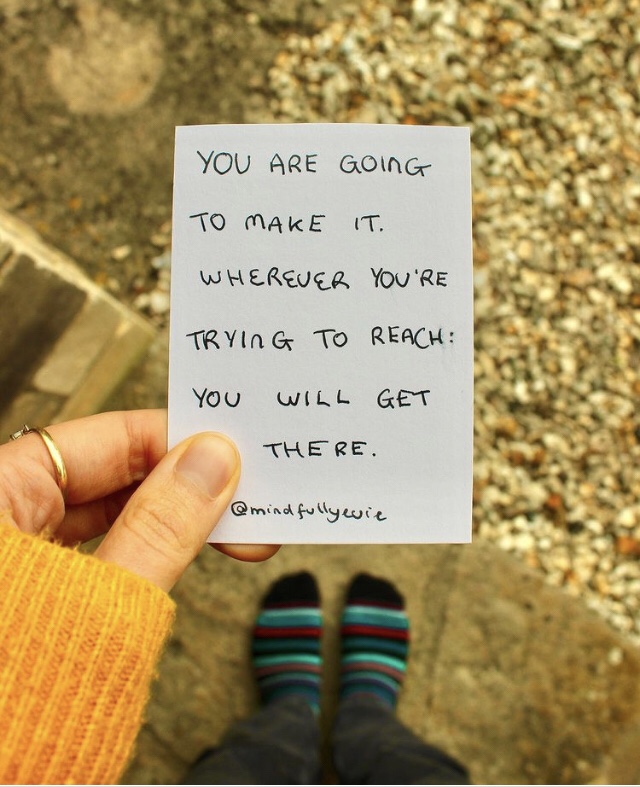 YOU ARE GOING
TO MAKE IT.
WHEREVER YOU'RE
TRYING TO REACH:
YOU WILL GET
THERE.
@mindfullyevie